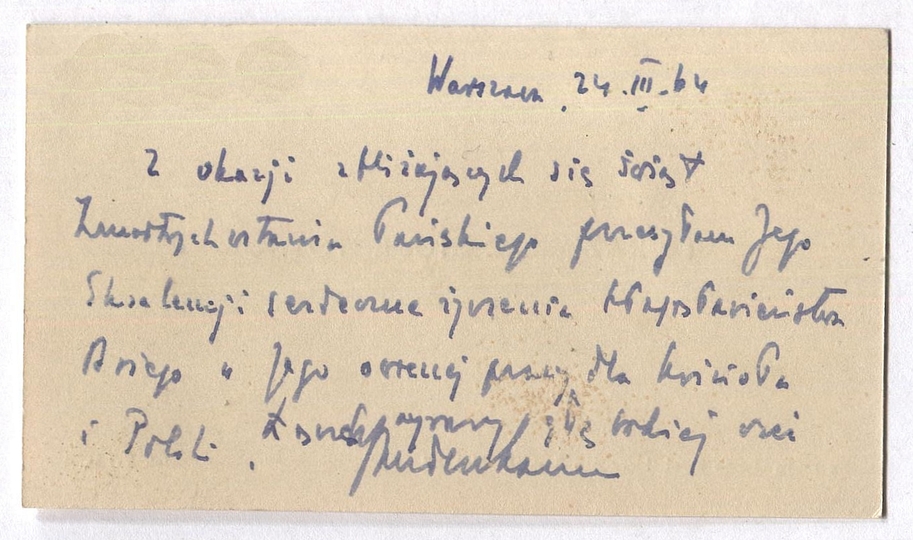 Warszawa, 24.III.64
Z okazji zbliżających się świąt
Zmartwychwstania Pańskiego przesyłam Jego
Ekscelencji serdeczne życzenia błogosławieństwa
Bożego w Jego owocnej pracy dla kościoła
i Polski. Z wyrazy głębokiej czci